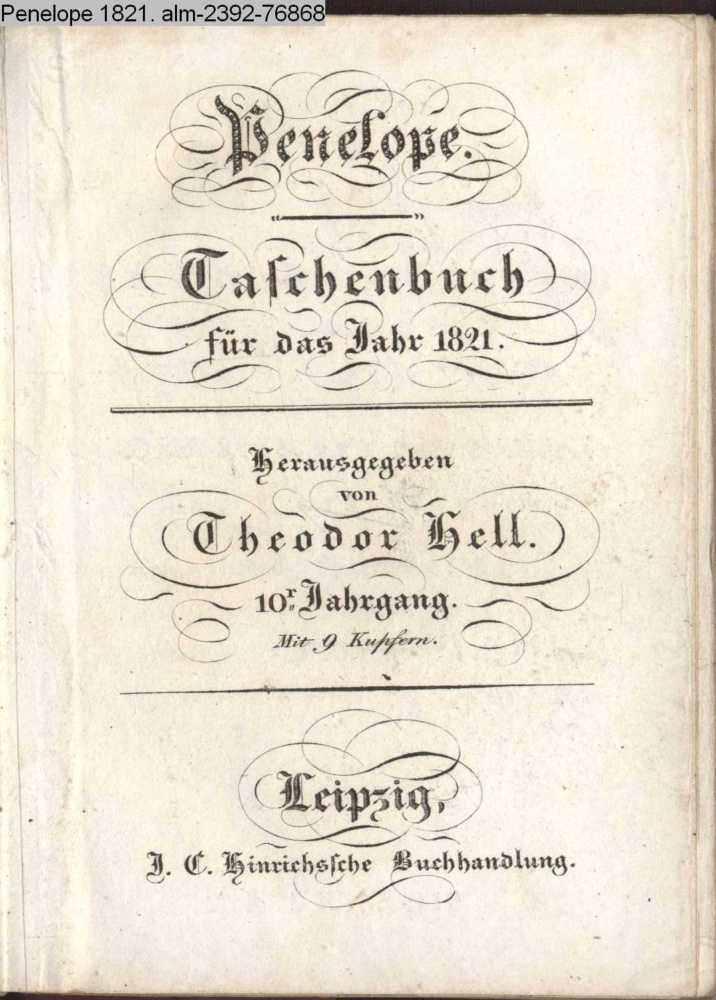 Penelope 1821. alm-2392-76868
Penelope.
Taſchenbuch
für das Jahr 1821.
Herausgegeben
von
Theodor Hell.
10r. Jahrgang.
Mit 9 Kupfern.
Leipzig,
J. C. Hinrichsſche Buchhandlung.